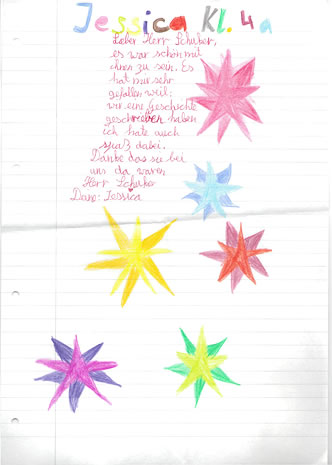 Jessica Kl. 4a
Lieber Herr Schuber,
es war schön mit
ihnen zu sein. Es
hat mir sehr
gefallen weil:
wir eine Geschichte
geschrieben haben
ich hate auch
spaß dabei.
Danke das sie bei
uns da waren
Herr Schuber
Dane: Jessica